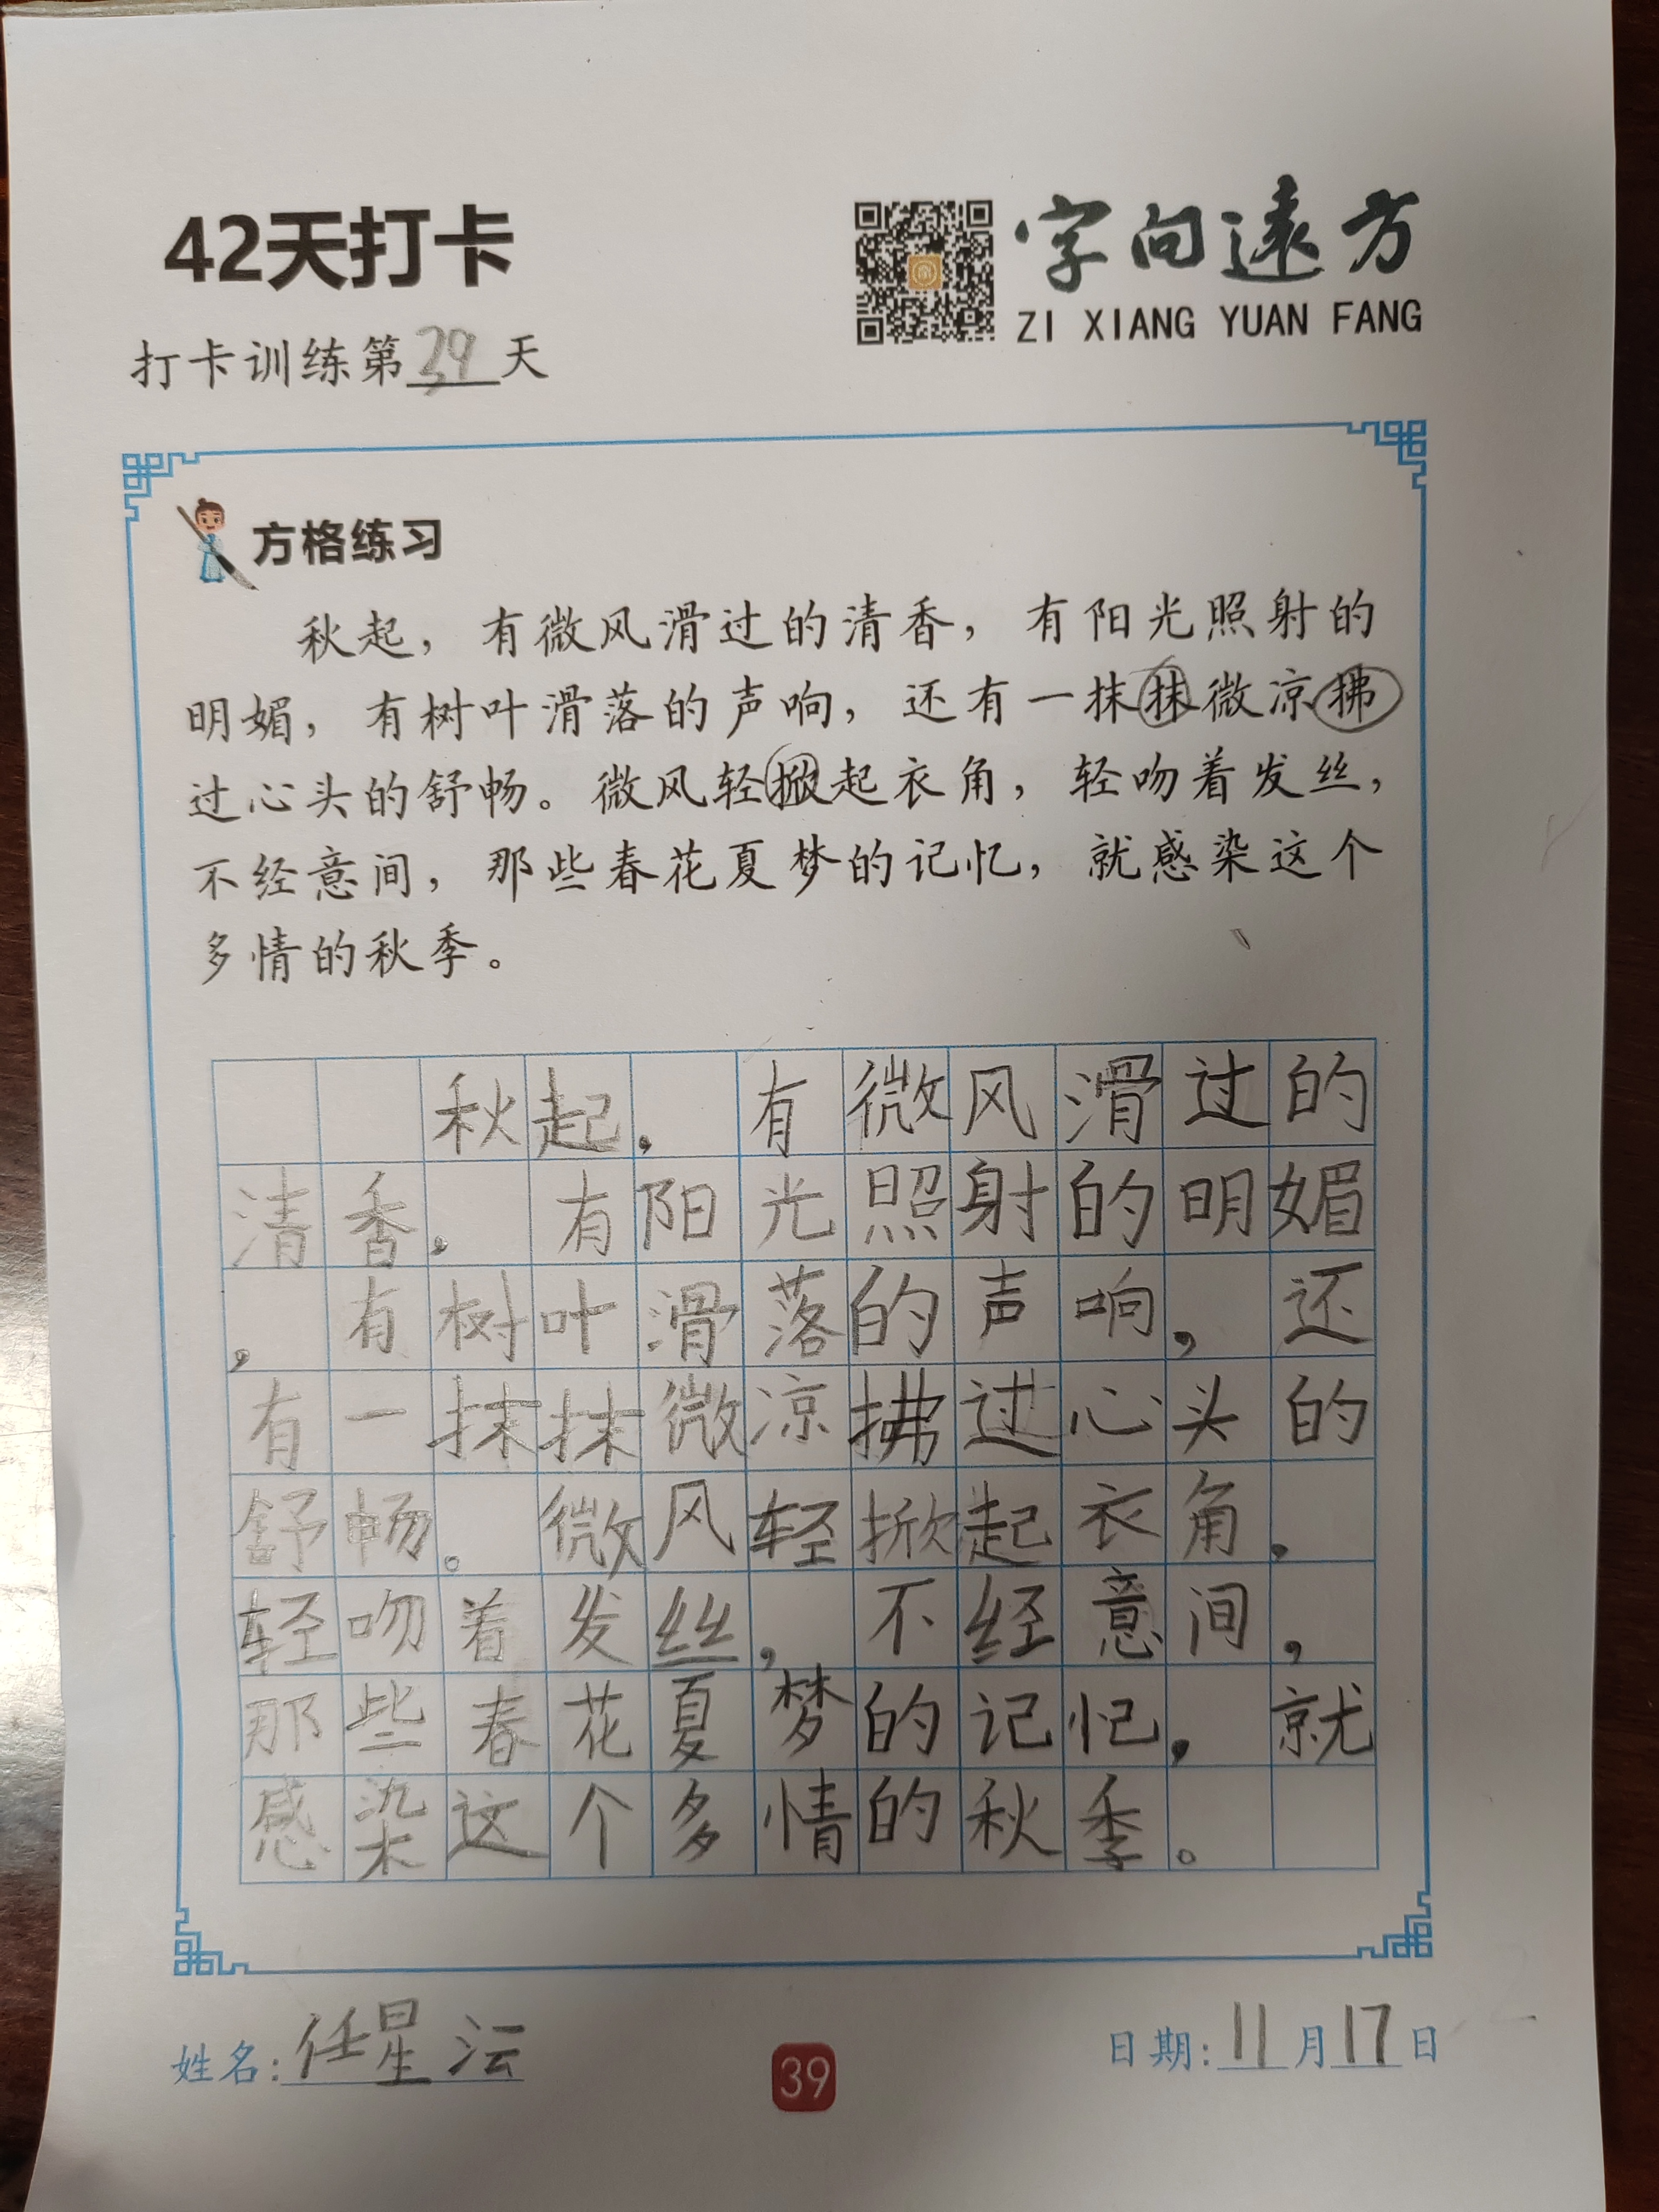 42天打卡
字向遠方
ZI XIANG YUAN FANG
打卡训练第39天
方格练习
秋起，有微风滑过的清香，有阳光照射的
明媚，有树叶滑落的声响，还有一抹抹微凉拂
过心头的舒畅。微风轻掀起衣角，轻吻着发丝，
不经意间，那些春花夏梦的记忆，就感染这个
多情的秋季。
秋起，有微风滑过的
清香，有阳光照射的明媚
，有树叶滑落的声响，还
有一抹抹微凉拂过心头的
舒畅。微风轻掀起衣角，
轻吻着发丝，不经意间，
那些春花夏梦的记忆，就
感染这个多情的秋季。
姓名：任星沄
39
日期：11月17日